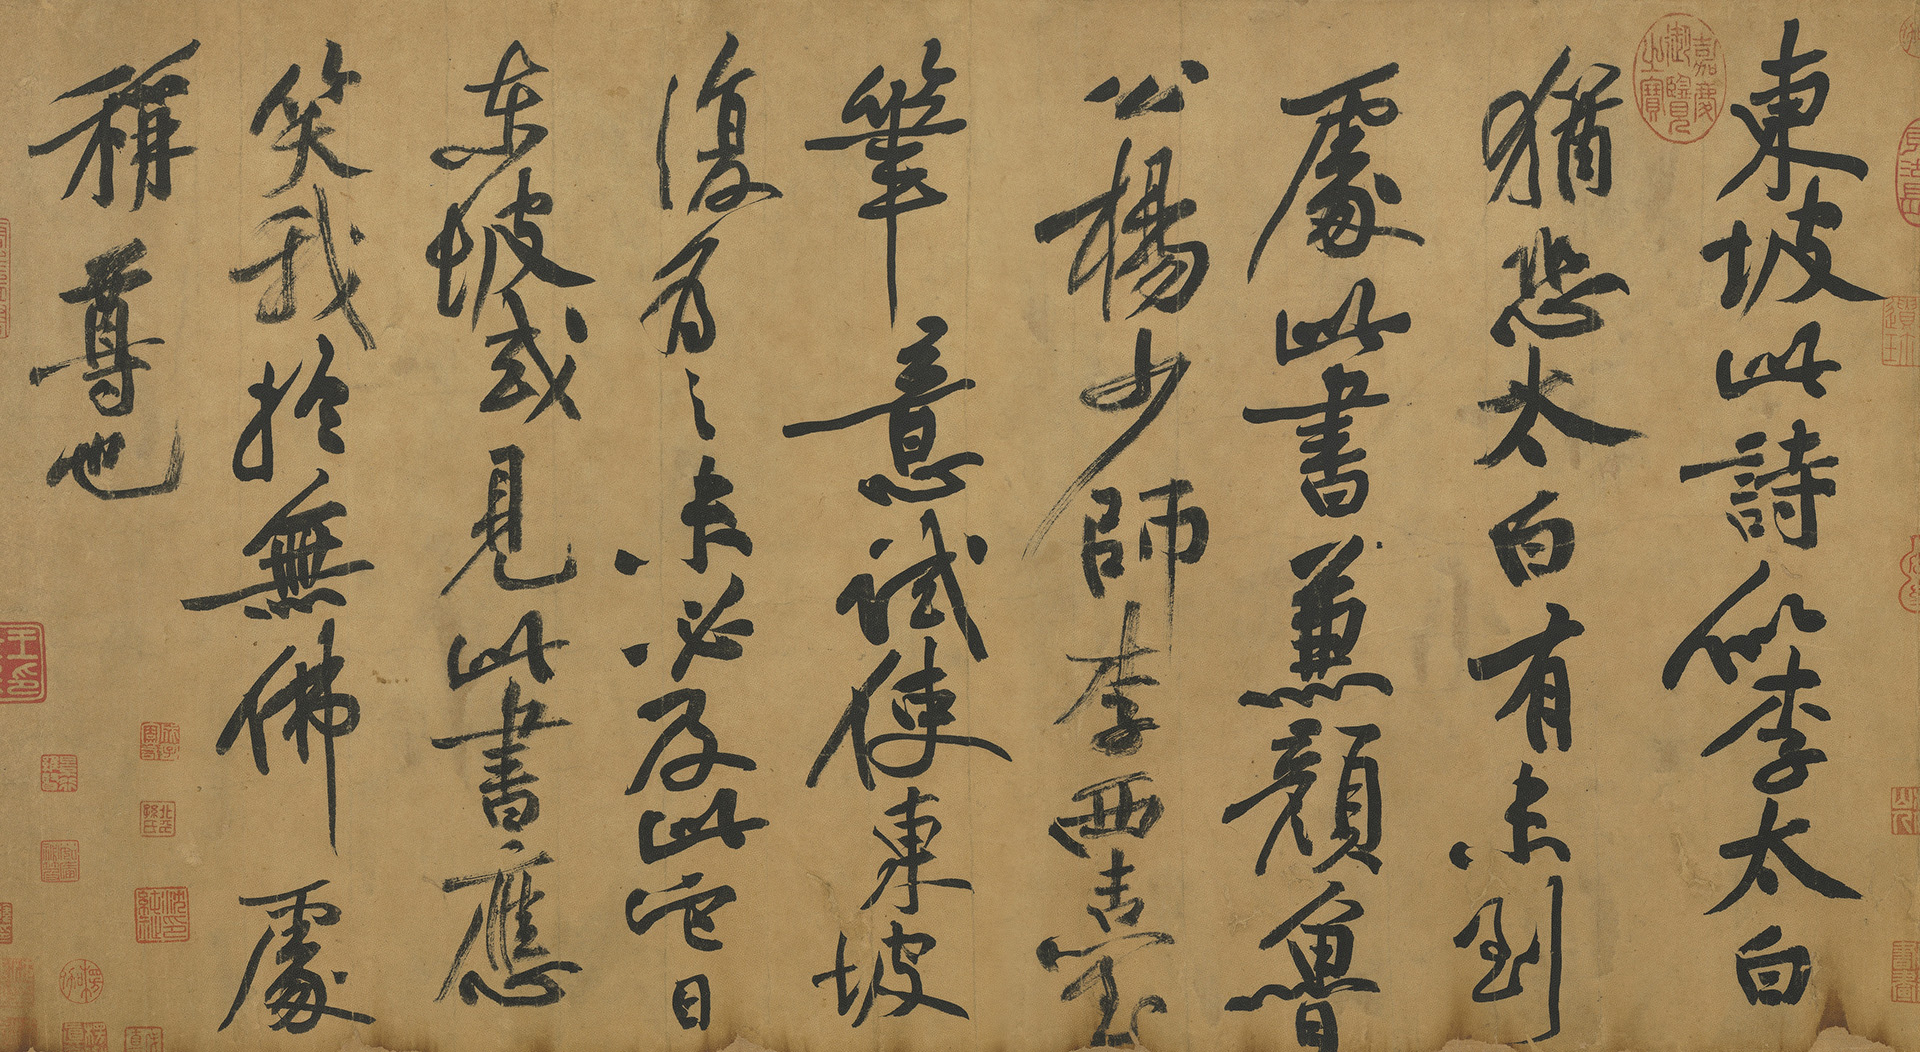 東坡此詩似李太白
猶恐太白有未到
處此書兼顏魯
公楊少師李西臺
筆意試使東坡
復為之未必及此它日
東坡或見此書應
笑我於無佛處
稱尊也
嘉慶御覽之寶